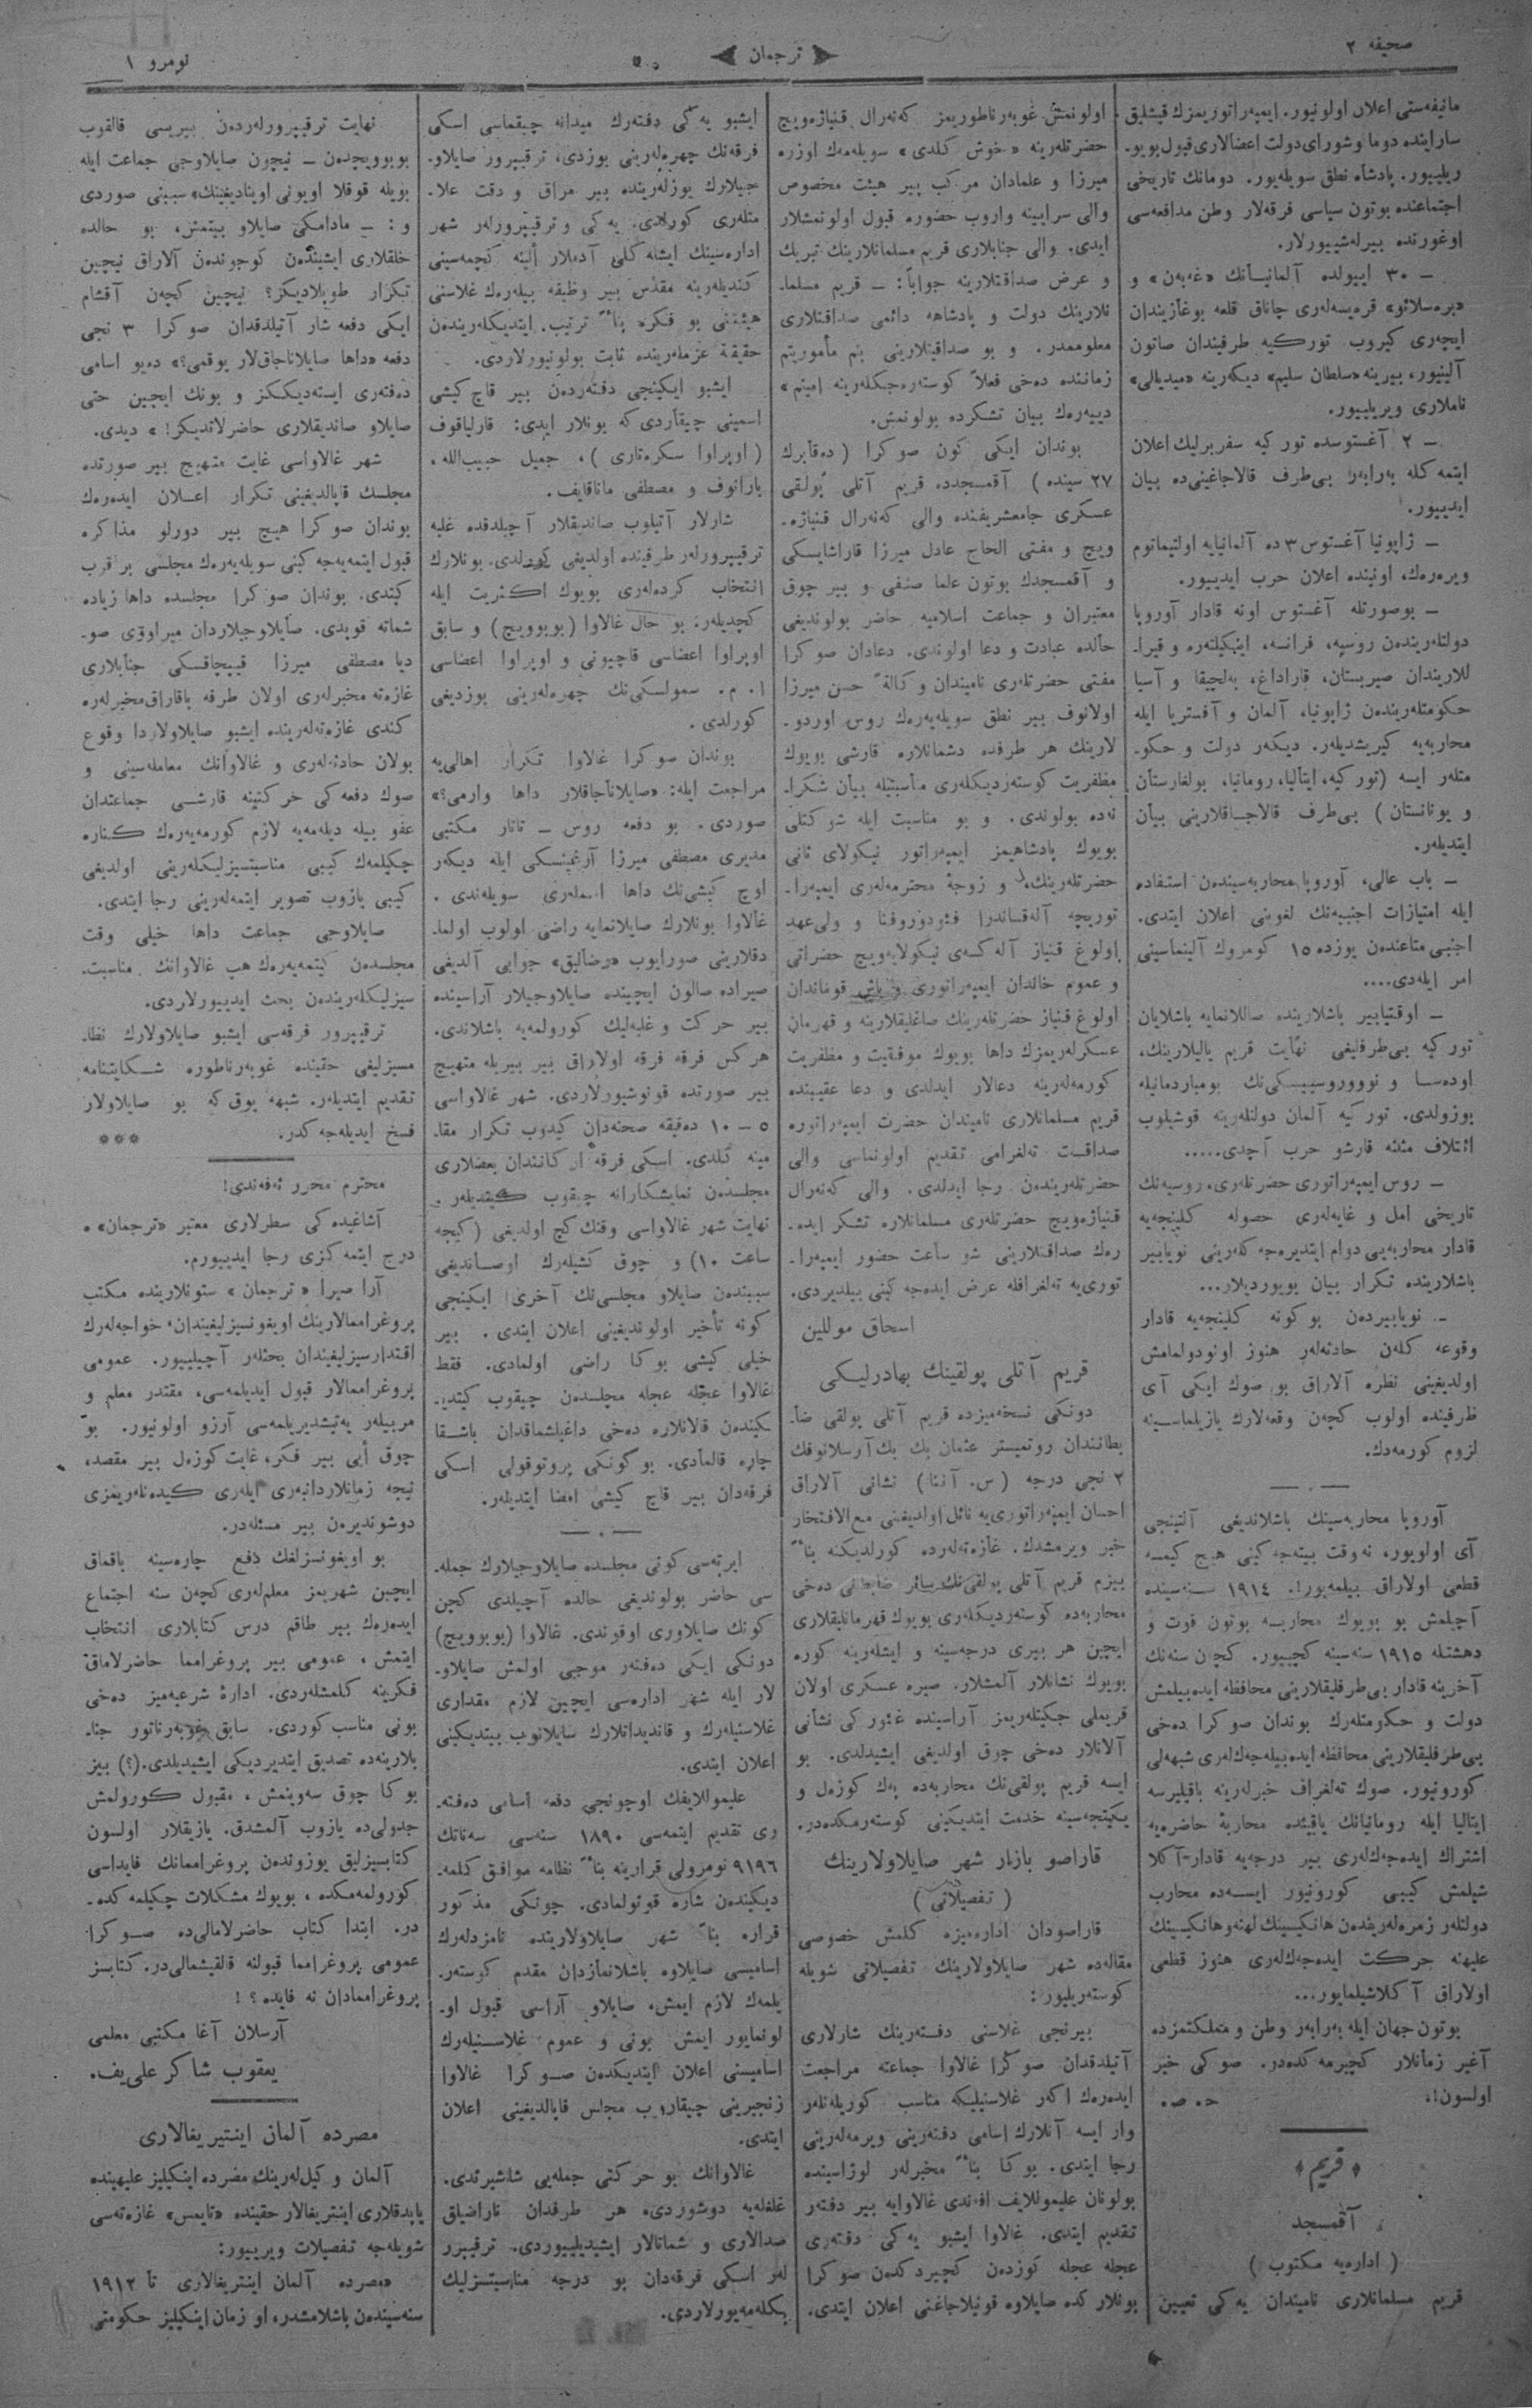 صحیفه ۲
ترجمان
نومرو ۱
مانیفه‌ستی اعلان اولونیور. ایمپه‌راتوریمزك قیشلیق
سارایندە دوما و شورای دولت اعضالاری قبول بویو-
ریلییور. پادشاه نطق سویله‌یور. دومانك تاریخی
اجتماعنده بوتون سیاسی فرقه‌لار وطن مدافعه‌سی
اوغورنده بیرله‌شییورلار.
— ۳۰ اییولده آلمانیانك «غه‌به‌ن» و
«بره‌سلاو» قره‌یسه‌لری چاناق قلعه بوغازیندان
ایچه‌ری كیروب توركیه طرفیندان صاتون
آلینیور، بیرینه «سلطان سلیم» دیكه‌رینه «میدیللی»
ناملاری ویریلییور.
— ۲ آغستوسده توركیه سفربرلیك اعلان
ایتمه‌كله به‌رابه‌ر بی‌طرف قالاجاغینی‌ده بیان
ایدییور.
— ژاپونیا آغستوس ۳ ده آلمانیایه اولتیماتوم
ویره‌ره‌ك، اونینده اعلان حرب ایدییور.
— بوصورتله آغستوس اونه قادار آوروپا
دولتله‌ریندن روسیه، فرانسه، اینكیلتره و قیرا-
للاریندان صیربستان، قاراداغ، به‌لچیقا و آسیا
حكومتله‌رینده‌ن ژاپونیا، آلمان و آفستریا ایله
محاربه‌یه كیریشدیله‌ر. دیكه‌ر دولت و حكو-
متله‌ر ایسه (توركیه، ایتالیا، رومانیا، بولغارستان
و یونانستان) بی‌طرف قالاجاقلارینی بیان
ایتدیله‌ر.
— باب عالی، آوروپا محاربه‌سیندن استفاده
ایله امتیازات اجنبیه‌نك لغوینی اعلان ایتدی.
اجنبی متاعندن یوزده ۱۵ كومروك آلینماسینی
امر ایله‌دی....
— اوقتیابیر باشلارینده صاللانمایه باشلایان
توركیه بی‌طرفلیغی نهایت قریم یالیلارینك،
اوده‌سا و نوووروسییسكی‌نك بومباردمانیله
بوزولدی. توركیه آلمان دولتله‌رینه قوشیلوب
ائتلاف مثلثه قارشو حرب آچدی.....
— روس ایمپه‌راتوری حضرتله‌ری، روسیه‌نك
تاریخی امل و غایه‌لری حصوله كلینچه‌یه
قادار محاربه‌یی دوام ایتدیره‌جه‌كله‌رینی نویابیر
باشلارینده تكرار بیان بویوردیلار...
— نویابیردن بوكونه كلینجه‌یه قادار
وقوعه كلن حادثه‌لر هنوز اونودولمامش
اولدیغینی نظره آلاراق بو صوك ایكی آی
ظرفینده اولوب كچن وقعه‌لارك یازیلماسینه
لزوم كورمه‌دك.
آوروپا محاربه‌سینك باشلاندیغی آلتینجی
آی اولویور، نه وقت بیته‌جه‌كینی هیچ كیمسه
قطعی اولاراق بیلمه‌یور!. ۱۹۱٤ سنه‌سینده
آچلمش بو بویوك محاربه بوتون قوت و
دهشتله ۱۹۱۵ سنه‌سینه كچییور. كچن سنه‌نك
آخرینه قادار بی‌طرفلیقلارینی محافظه ایده‌بیلمش
دولت و حكومتله‌رك بوندان صوكرا ده‌خی
بی‌طرفلیقلارینی محافظه ایده‌بیله‌جه‌كله‌ری شبهه‌لی
كورونیور. صوك تلغراف خبرله‌رینه باقیلیرسه
ایتالیا ایله رومانیانك یاقینده محاربۀ حاضره‌یه
اشتراك ایده‌جه‌كله‌ری بیر درجه‌یه قادار آكلا
شیلمش كیبی كورونیور ایسه‌ده محارب
دولتله‌ر زمره‌له‌رینده‌ن هانكیسینك لهنه و هانكیسینك
علیهنه حركت ایده‌جه‌كله‌ری هنوز قطعی
اولاراق آكلاشیلمایور...
بوتون جهان ایله به‌رابه‌ر وطن و مملكتمزده
آغیر زمانلار كچیرمه‌كده‌در. صوكی خیر
اولسون!.
ح. ص.
﴿قریم﴾
آقمسجد
(اداره‌یه مكتوب)
قریم مسلمانلاری نامیندان یه‌كی تعیین
اولونمش غوبه‌رناطوریمز كه‌نه‌رال قنیاژه‌ویچ
حضرتله‌رینه «خوش كلدی» سویله‌مه‌ك اوزره
میرزا و علمادان مركب بیر هیئت مخصوص
والی سرایینه واروب حضوره قبول اولونمشلار
ایدی. والی جنابلاری قریم مسلمانلارینك تبریك
و عرض صداقتلارینه جواباً: — قریم مسلما-
نلارینك دولت و پادشاهه دائمی صداقتلاری
معلوممدر. و بو صداقتلارینی بنم مأموریتم
زماننده ده‌خی فعلاً كوستره‌جكله‌رینه امینم»
دییه‌ره‌ك بیان تشكرده بولونمش.
بوندان ایكی كون صوكرا (ده‌قابرك
۲۷ سینده) آقمسجدده قریم آتلی پولقی
عسكری جامع‌شریفنده والی كه‌نه‌رال قنیاژه-
ویچ و مفتی الحاج عادل میرزا قاراشایسكی
و آقمسجدك بوتون علما صنفی و بیر چوق
معتبران و جماعت اسلامیه حاضر بولوندیغی
حالده عبادت و دعا اولوندی. دعادان صوكرا
مفتی حضرتله‌ری نامیندان وكالةً حسن میرزا
اولانوف بیر نطق سویله‌یه‌ره‌ك روس اوردو-
لارینك هر طرفده دشمانلاره قارشی بویوك
مظفریت كوسته‌ردیكله‌ری مناسبتیله بیان شكرا-
نه‌ده بولوندی. و بو مناسبت ایله شوكتلی
بویوك پادشاهیمز ایمپه‌راتور نیكولای ثانی
حضرتله‌رینك، و زوجۀ محترمه‌له‌ری ایمپه‌را-
توریچه آله‌قساندرا فئودوروفنا و ولی‌عهد
اولوغ قنیاز آله‌كسه‌ی نیكولایه‌ویچ حضراتی
و عموم خاندان ایمپه‌راتوری و باش قوماندان
اولوغ قنیاز حضرتله‌رینك صاغلیقلارینه و قهرمان
عسكرله‌ریمزك داها بویوك موفقیت و مظفریت
كورمه‌له‌رینه دعالار ایدلدی و دعا عقیبنده
قریم مسلمانلاری نامیندان حضرت ایمپه‌راتوره
صداقت ته‌لغرامی تقدیم اولونماسی والی
حضرتله‌رینده‌ن رجا ایدلدی. والی كه‌نه‌رال
قنیاژه‌ویچ حضرتله‌ری مسلمانلاره تشكر ایده-
ره‌ك صداقتلارینی شو ساعت حضور ایمپه‌را-
توری‌یه ته‌لغرافله عرض ایده‌جه‌كینی بیلدیردی.
اسحاق موللین
قریم آتلی پولقینك بهادرلیكی
دونكی نسخه‌میزده قریم آتلی پولقی ضا-
بطانندان روتمیستر عثمان بك بك آرسلانوفك
۲ نجی درجه (س. آننا) نشانی آلاراق
احسان ایمپه‌راتوری‌یه نائل اولدیغینی مع‌الافتخار
خبر ویرمشدك. غازه‌ته‌له‌رده كورلدیكنه بناءً
بیزم قریم آتلی پولقی‌نك سائر ضابطانی ده‌خی
محاربه‌ده كوسته‌ردیكله‌ری بویوك قهرمانلیقلاری
ایچین هر بیری درجه‌سینه و ایشله‌رینه كوره
بویوك نشانلار آلمشلار. صیره عسكری اولان
قریملی جكیتله‌ریمز آراسینده غئوركی نشانی
آلانلار ده‌خی چوق اولدیغی ایشیدلدی. بو
ایسه قریم پولقی‌نك محاربه‌ده په‌ك كوزه‌ل و
یكیتجه‌سینه خدمت ایتدیكینی كوسته‌رمكده‌در.
قاراصو بازار شهر صایلاولارینك
(تفصیلاتی)
قاراصودان اداره‌میزه كلمش خصوصی
مقاله‌ده شهر صایلاولارینك تفصیلاتی شویله
كوسته‌ریلیور:
بیرنجی غلاسنی دفته‌رینك شارلاری
آتیلدقدان صوكرا غالاوا جماعته مراجعت
ایده‌ره‌ك اكه‌ر غلاسنیلیكه مناسب كوریله‌نله‌ر
وار ایسه آنلارك اسامی دفته‌رینی ویرمه‌له‌رینی
رجا ایتدی. بوكا بناءً مخبرله‌ر لوژاسینده
بولونان علیموللایف افندی غالاوایه بیر دفته‌ر
تقدیم ایتدی. غالاوا ایشبو یه‌كی دفته‌ری
عجله عجله كوزدن كچیردكدن صوكرا
بونلاركده صایلاوه قونیلاجاغنی اعلان ایتدی.
ایشبو یه‌كی دفته‌رك میدانه چیقماسی اسكی
فرقه‌نك چهره‌له‌رینی بوزدی، ترقیپرور صایلاو-
جیلارك یوزله‌رینده بیر مراق و دقت علا-
متله‌ری كورلدی. یه‌كی و ترقیپرورله‌ر شهر
اداره‌سینك ایشه كلی آدملار ألینه كچمه‌سینی
كندیله‌رینه مقدس بیر وظیفه بیله‌ره‌ك غلاسنی
هیئتنی بو فكره بناءً ترتیب ایتدیكله‌رینده‌ن
حقیقة عزمله‌رینده ثابت بولونیورلاردی.
ایشبو ایكینجی دفته‌رده‌ن بیر قاچ كیشی
اسمینی چیقاردی كه بونلار ایدی: قارلیاقوف
(اوپراوا سكره‌تاری)، جمیل حبیب‌الله،
بارانوف و مصطفی ماناقایف.
شارلار آتیلوب صاندیقلار آچیلدقده غلبه
ترقیپرورله‌ر طرفینده اولدیغی كورلدی. بونلارك
انتخاب كرده‌له‌ری بویوك اكثریت ایله
كچدیله‌ر. بو حال غالاوا (بوبوویچ) و سابق
اوپراوا اعضاسی قاچیونی و اوپراوا اعضاسی
ا. م. سمولسكی‌نك چهره‌له‌رینی بوزدیغی
كورلدی.
بوندان صوكرا غالاوا تكرار اهالی‌یه
مراجعت ایله: «صایلاناجاقلار داها وارمی؟»
صوردی. بو دفعه روس — تاتار مكتبی
مدیری مصطفی میرزا آرغینسكی ایله دیكه‌ر
اوچ كیشی‌نك داها اسمله‌ری سویله‌ندی.
غالاوا بونلارك صایلانمایه راضی اولوب اولما-
دقلارینی صورایوب «رضالیق» جوابی آلدیغی
صیراده صالون ایچینده صایلاوجیلار آراسینده
بیر حركت و غلبه‌لیك كورولمه‌یه باشلاندی.
هركس فرقه فرقه اولاراق بیر بیریله متهیج
بیر صورتده قونوشیورلاردی. شهر غالاواسی
۵ — ۱۰ دقیقه صحنه‌دان كیدوب تكرار مقا-
مینه كلدی. اسكی فرقه اركانندان بعضلاری
مجلسدن نمایشكارانه چیقوب كیتدیله‌ر.
نهایت شهر غالاواسی وقتك كچ اولدیغی (كیجه
ساعت ۱۰) و چوق كشیله‌رك اوصاندیغی
سببندن صایلاو مجلسی‌نك آخری ایكینجی
كونه تأخیر اولوندیغینی اعلان ایتدی. بیر
خیلی كیشی بوكا راضی اولمادی. فقط
غالاوا عجله عجله مجلسدن چیقوب كیتدی-
كیندن قالانلاره ده‌خی داغیلشماقدان باشقا
چاره قالمادی. بو كونكی پروتوقولی اسكی
فرقه‌دان بیر قاچ كیشی امضا ایتدیله‌ر.
ایرته‌سی كونی مجلسده صایلاوجیلارك جمله-
سی حاضر بولوندیغی حالده آچیلدی كچن
كونك صایلاوری اوقوندی. غالاوا (بوبوویچ)
دونكی ایكی ده‌فته‌ر موجبی اولمش صایلاو-
لار ایله شهر اداره‌سی ایچین لازم مقداری
غلاسنیله‌رك و قاندیداتلارك سایلانوب بیتدیكینی
اعلان ایتدی.
علیموللایفك اوچونجی دفعه اسامی ده‌فته-
ری تقدیم ایتمه‌سی ۱۸۹۰ سنه‌سی سه‌ناتك
۹۱۹٦ نومرولی قرارینه بناءً نظامه موافق كلمه-
دیكیندن شاره قونولمادی. چونكی مذكور
قراره بناءً شهر صایلاولارینده نامزدله‌رك
اسامیسی صایلاوه باشلانمازدان مقدم كوسته‌ر-
یلمه‌ك لازم ایمش، صایلاو آراسی قبول او-
لونمایور ایمش بونی و عموم غلاسنیله‌رك
اسامیسنی اعلان ایتدیكدن صوكرا غالاوا
زنجیرینی چیقاروب مجلس قاپالدیغینی اعلان
ایتدی.
غالاوانك بو حركتی جمله‌یی شاشیرتدی.
غلغله‌یه دوشوردی. هر طرفدان ناراضیلق
صدالاری و شماتالار ایشیدیلییوردی. ترقیپرر
لەر اسكی فرقه‌دان بو درجه مناسبتسزلیك
بكله‌مه‌یورلاردی.
نهایت ترقیپرورله‌رده‌ن بیریسی قالقوب
بوبوویچدن — نیچون صایلاوجی جماعت ایله
بویله قوقلا اویونی اوینادیغینك» سببنی صوردی
و: — مادامكی صایلاو بیتمش، بو حالده
خلقلاری ایشیندن كوجوندن آلاراق نیچین
تكرار طوپلادیكز؟ نیچین كچن آقشام
ایكی دفعه شار آتیلدقدان صوكرا ۳ نجی
دفعه «داها صایلاناجاق‌لار یوقمی؟» ده‌یو اسامی
ده‌فته‌ری ایسته‌دیككز و بونك ایچین حتی
صایلاو صاندیقلاری حاضرلاندیكز!» دیدی.
شهر غالاواسی غایت متهیج بیر صورتده
مجلسك قاپالدیغینی تكرار اعلان ایده‌ره‌ك
بوندان صوكرا هیچ بیر دورلو مذاكره
قبول ایتمه‌یه‌جه‌كینی سویله‌یه‌ره‌ك مجلسی براقوب
كیتدی. بوندان صوكرا مجلسده داها زیاده
شماته قوپدی. صایلاوجیلاردان میراوۆی صو-
دیا مصطفی میرزا قیپچاقسكی جنابلاری
غازه‌ته مخبرله‌ری اولان طرفه باقاراق مخبرله‌ره
كندی غازه‌ته‌له‌رینده ایشبو صایلاولاردا وقوع
بولان حادثه‌له‌ری و غالاوانك معامله‌سینی و
صوك دفعه‌كی حركتینه قارشی جماعتدان
عفو بیله دیله‌مه‌یه لازم كورمه‌یه‌ره‌ك كناره
چكیلمه‌ك كیبی مناسبتسیزلیكله‌رینی اولدیغی
كیبی یازوب تصویر ایتمه‌له‌رینی رجا ایتدی.
صایلاوجی جماعت داها خیلی وقت
مجلسدن كیتمه‌یه‌ره‌ك هپ غالاوانك مناسبت-
سیزلیكله‌رینده‌ن بحث ایدییورلاردی.
ترقیپرور فرقه‌سی ایشبو صایلاولارك نظا-
مسیزلیغی حقینده غوبه‌رناطوره شكایتنامه
تقدیم ایتدیله‌ر. شبهه یوق كه بو صایلاولار
فسخ ایدیله‌جه‌كدر. ***
محترم محرر ئه‌فه‌ندی!
آشاغیده‌كی سطرلاری معتبر «ترجمان» ه
درج ایتمه‌كزی رجا ایدییورم.
آرا صیرا «ترجمان» ستونلارینده مكتب
پروغراممالارینك اویغونسیزلیغیندان، خواجه‌له‌رك
اقتدارسیزلیغیندان بحثله‌ر آچیلییور. عمومی
پروغراممالار قبول ایدیلمه‌سی، مقتدر معلم و
مربیله‌ر یه‌تیشدیریلمه‌سی آرزو اولونیور. بو
چوق أیی بیر فكر، غایت كوزه‌ل بیر مقصد،
نیجه زمانلاردانبه‌ری ایله‌ری كیده‌نله‌ریمزی
دوشوندیره‌ن بیر مسئله‌در.
بو اویغونسزلغك دفع چاره‌سینه باقماق
ایچین شهریمز معلمله‌ری كچن سنه اجتماع
ایده‌ره‌ك بیر طاقم درس كتابلاری انتخاب
ایتمش، عمومی بیر پروغراما حاضرلاماق
فكرینه كلمشله‌ردی. ادارۀ شرعیه‌میز ده‌خی
بونی مناسب كوردی. سابق غوبه‌رناتور جنا-
بلارینه‌ده تصدیق ایتدیردیكی ایشیدیلدی.(؟) بیز
بوكا چوق سه‌وینمش، مقبول كورولمش
جدولی‌ده یازوب آلمشدق. یازیقلار اولسون
كتابسیزلیق یوزوندن پروغراممانك فایداسی
كورولمه‌مكده، بویوك مشكلات چكیلمه‌كده-
در. ابتدا كتاب حاضرلامالی‌ده صوكرا
عمومی پروغراما قبولنه قالقیشمالی‌در. كتابسز
پروغراممادان نه فایده؟!
آرسلان آغا مكتبی معلمی
یعقوب شاكر علی‌یف.
مصرده آلمان اینتیریغالاری
آلمان وكیل‌له‌رینك مصرده اینكیلیز علیهینده
یاپدقلاری اینتریغالار حقینده «تایمس» غازه‌ته‌سی
شویله‌جه تفصیلات ویرییور:
«مصرده آلمان اینتریغالاری تا ۱۹۱۲
سنه‌سیندن باشلامشدر، او زمان اینكیلیز حكومتی